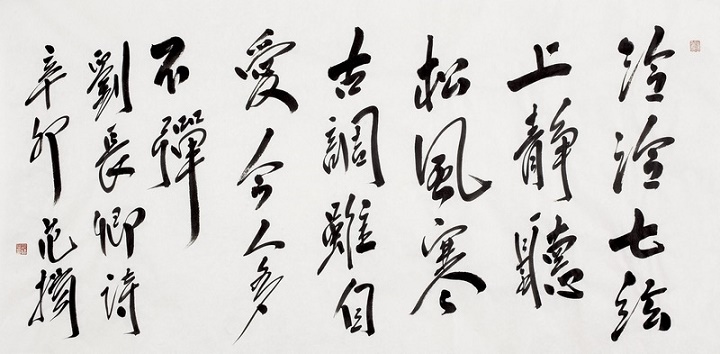 泠泠七絃
上靜聽
松風寒
古調雖自
愛今人多
不彈
劉長卿詩
辛卯范